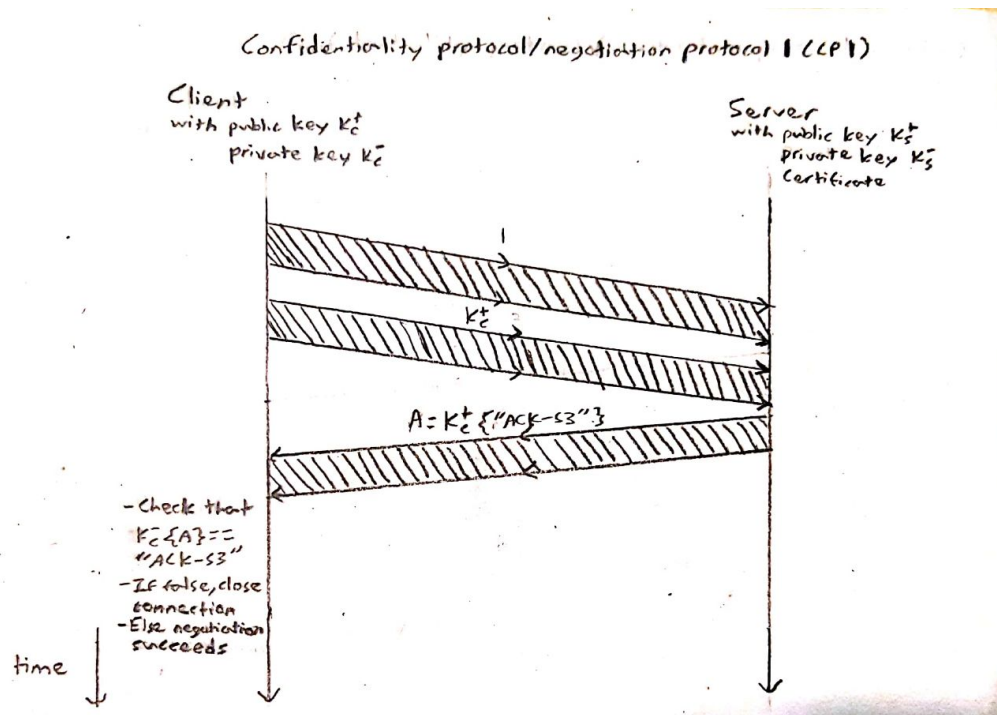 Confidentiality protocol/negotiation protocol 1 (CP1)
Client
with public key K_c^+
private key K_c^-
Server
with public key K_s^+
private key K_s^-
Certificate
1
K_c^+
A = K_c^+{"ACK-S3"}
- Check that
K_c^-{A} ==
"ACK-S3"
- If false, close
connection
- Else negotiation
succeeds
time